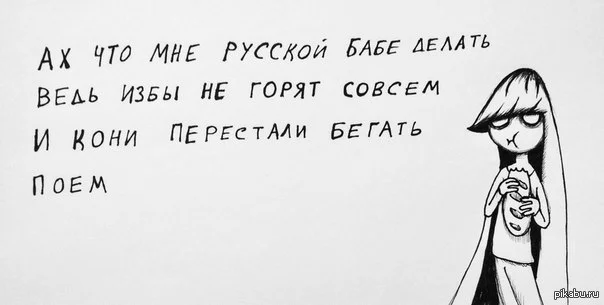 АХ ЧТО МНЕ РУССКОЙ БАБЕ ДЕЛАТЬ
ВЕДЬ ИЗБЫ НЕ ГОРЯТ СОВСЕМ
И КОНИ ПЕРЕСТАЛИ БЕГАТЬ
ПОЕМ
pikabu.ru